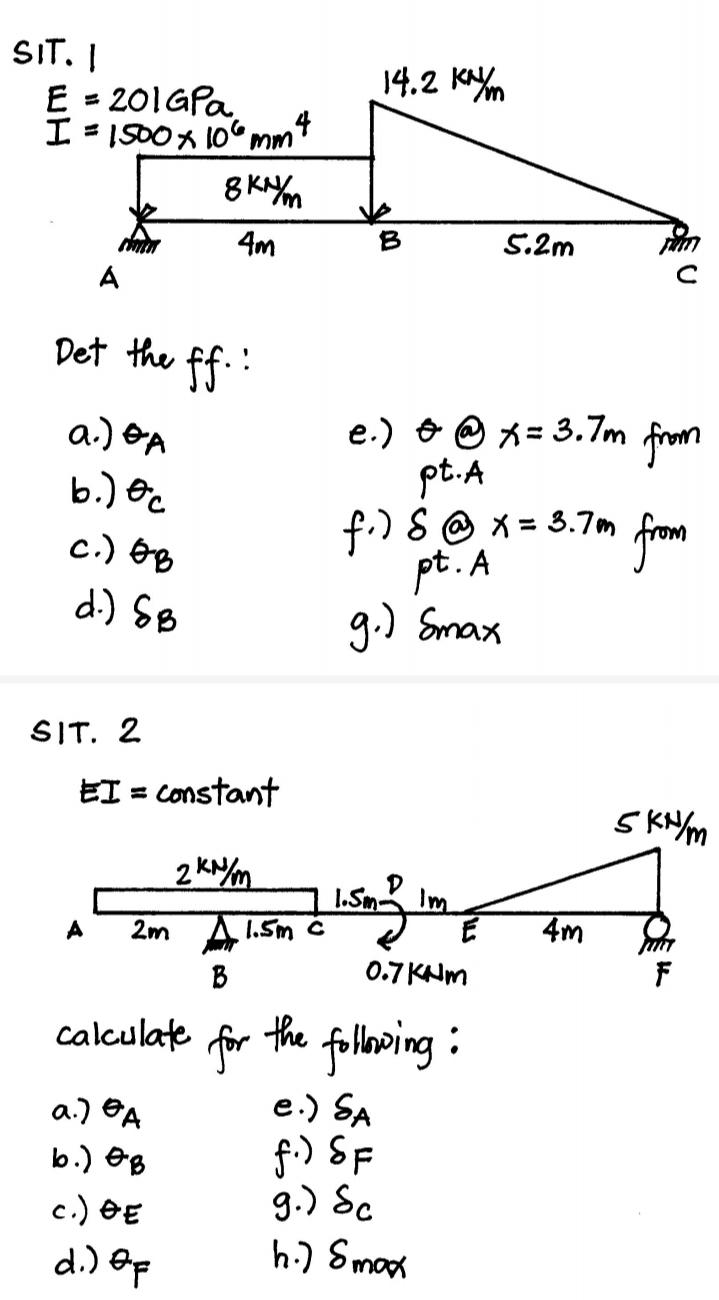 SIT. 1
E = 201GPa
I = 1500 x 10⁶ mm⁴
14.2 KN/m
8 KN/m
4m
B
5.2m
A
C
Det the ff. :
a.) θA
b.) θc
c.) θB
d.) δB
e.) θ @ x = 3.7m from
pt. A
f.) δ @ x = 3.7m from
pt. A
g.) δmax
SIT. 2
EI = constant
5 KN/m
2 KN/m
1.5m
D
1m
A
2m
1.5m
C
E
4m
B
0.7 KNm
F
calculate for the following :
a.) θA
b.) θB
c.) θE
d.) θF
e.) δA
f.) δF
g.) δc
h.) δmax